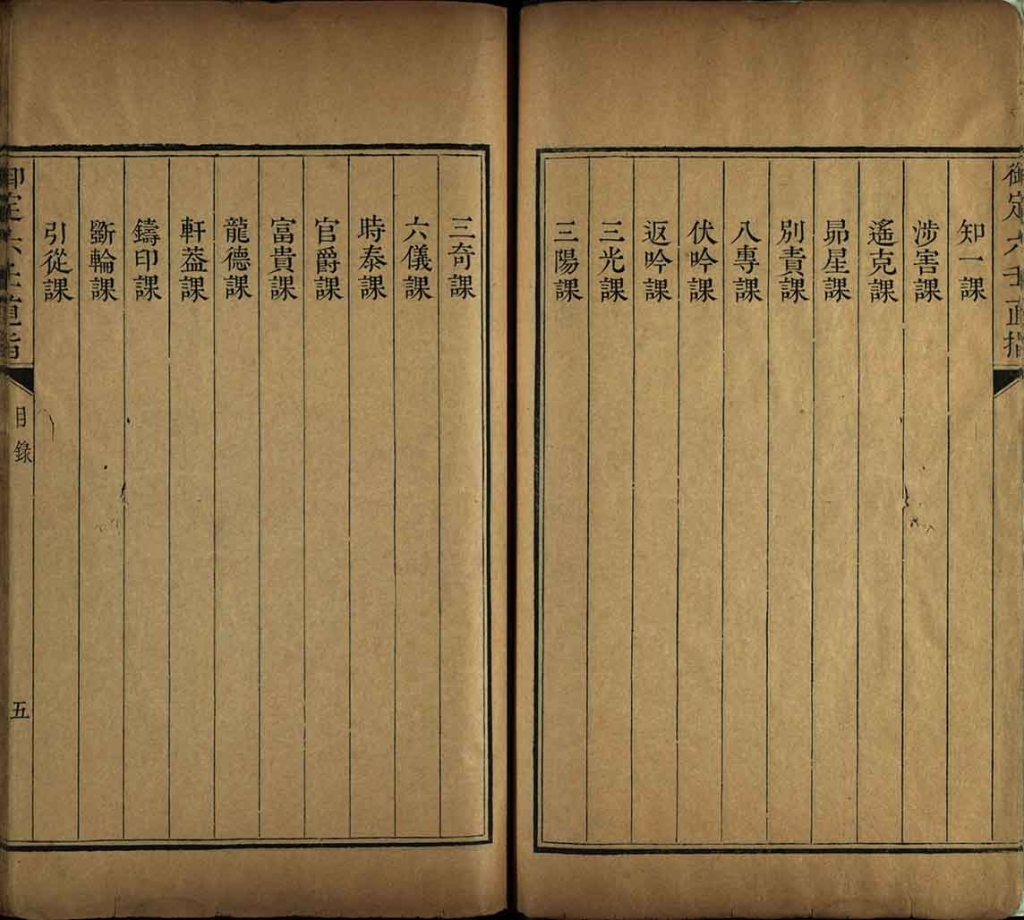 御定六壬直指
知一課
涉害課
遙克課
昴星課
別責課
八專課
伏吟課
返吟課
三光課
三陽課
三奇課
六儀課
時泰課
官爵課
富貴課
龍德課
軒葢課
鑄印課
斵輪課
引從課
御定六壬直指
目錄
五